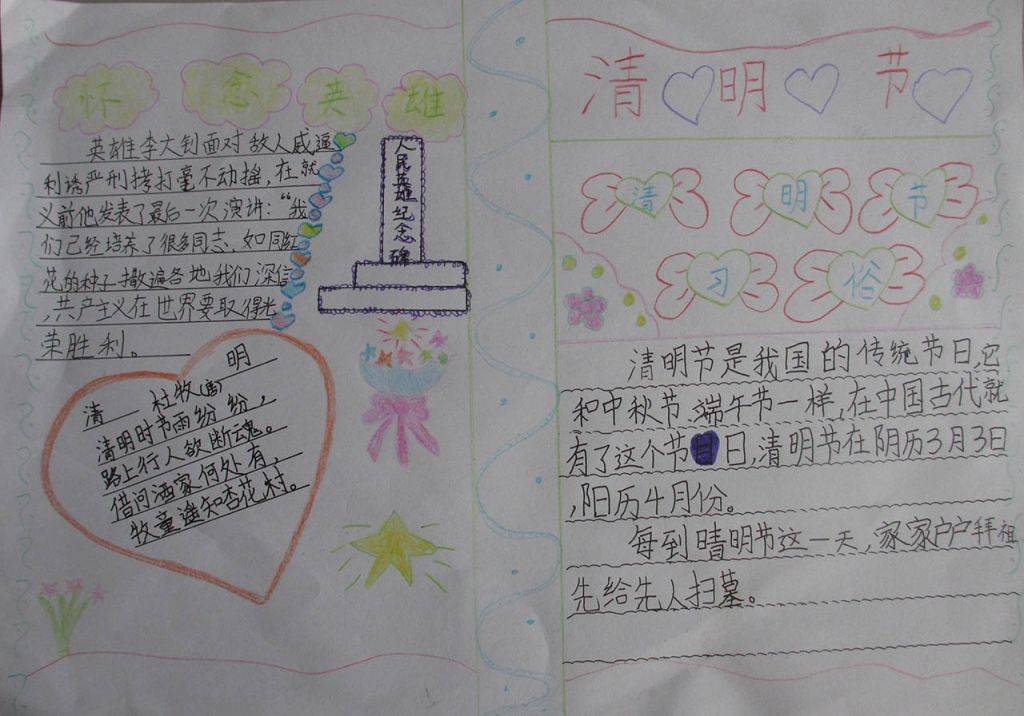 怀念英雄
英雄李大钊面对敌人威逼
利诱严刑拷打毫不动摇,在就
义前他发表了最后一次演讲:“我
们已经培养了很多同志、如同红
花的种子撒遍各地我们深信
,共产主义在世界要取得光
荣胜利。
人民英雄纪念碑
清明
村牧(杜)
清明时节雨纷纷,
路上行人欲断魂。
借问酒家何处有,
牧童遥知杏花村。
清明节
清明节
习俗
清明节是我国的传统节日,它
和中秋节、端午节一样,在中国古代就
有了这个节日,清明节在阴历3月3日
,阳历4月份。
每到晴明节这一天,家家户户拜祖
先给先人扫墓。